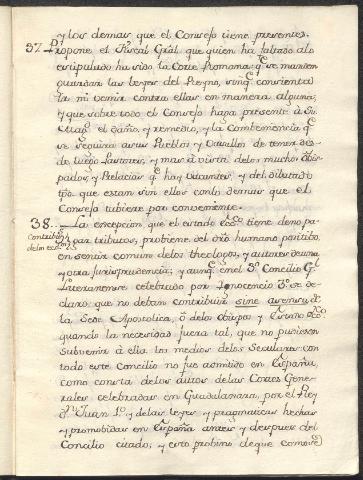 y los demas que el Consejo tiene presentes.
37. Propone el Fiscal Gral que quien ha faltado alo
estipulado ha sido la Corte Romana q.e se manden
guardar las leyes del Reyno, sinq.e consienta
ir ni venir contra ellas en manera alguna,
y que sobre todo el Consejo haga presente à Su
Mag.d el daño, y remedio, y la combeniencia q.e
se seguirà asus Pueblos y Vasallos de tener des-
de luego Pastores, y mas à vista delos muchos Obis-
pados, y Prelacias q.e hay vacantes, y del dilatado
tpô. que estan sin ellos conlo demas que el
Consejo tubiere por conveniente.
38. La excepcion que el estado ecc.co tiene deno pa-
Contribucion
delos ecc.cos
gar tributos, probiene del dro humano positibo
en sentir comun delos theologos, y autores de una
y otra Jurisprudencia; y aunq.e en el 3.o Concilio G.l
Lateranense celebrado por Inocencio 3.o se de-
claro que no deban contribuir sine assensu de
la Sede Apostolica, ò delos obispos y Clero
quando la necesidad fuera tal, que no pudiesen
subvenir à ella los medios delos Seculares con
todo este Concilio no fue admitido en España,
como consta delos autos delas Cortes Gene-
rales celebradas en Guadalaxara, por el Rey
d.n Juan 1.o y delas leyes y pragmaticas hechas
y promobidas en España antes y despues del
Concilio citado; y esto probino deque como